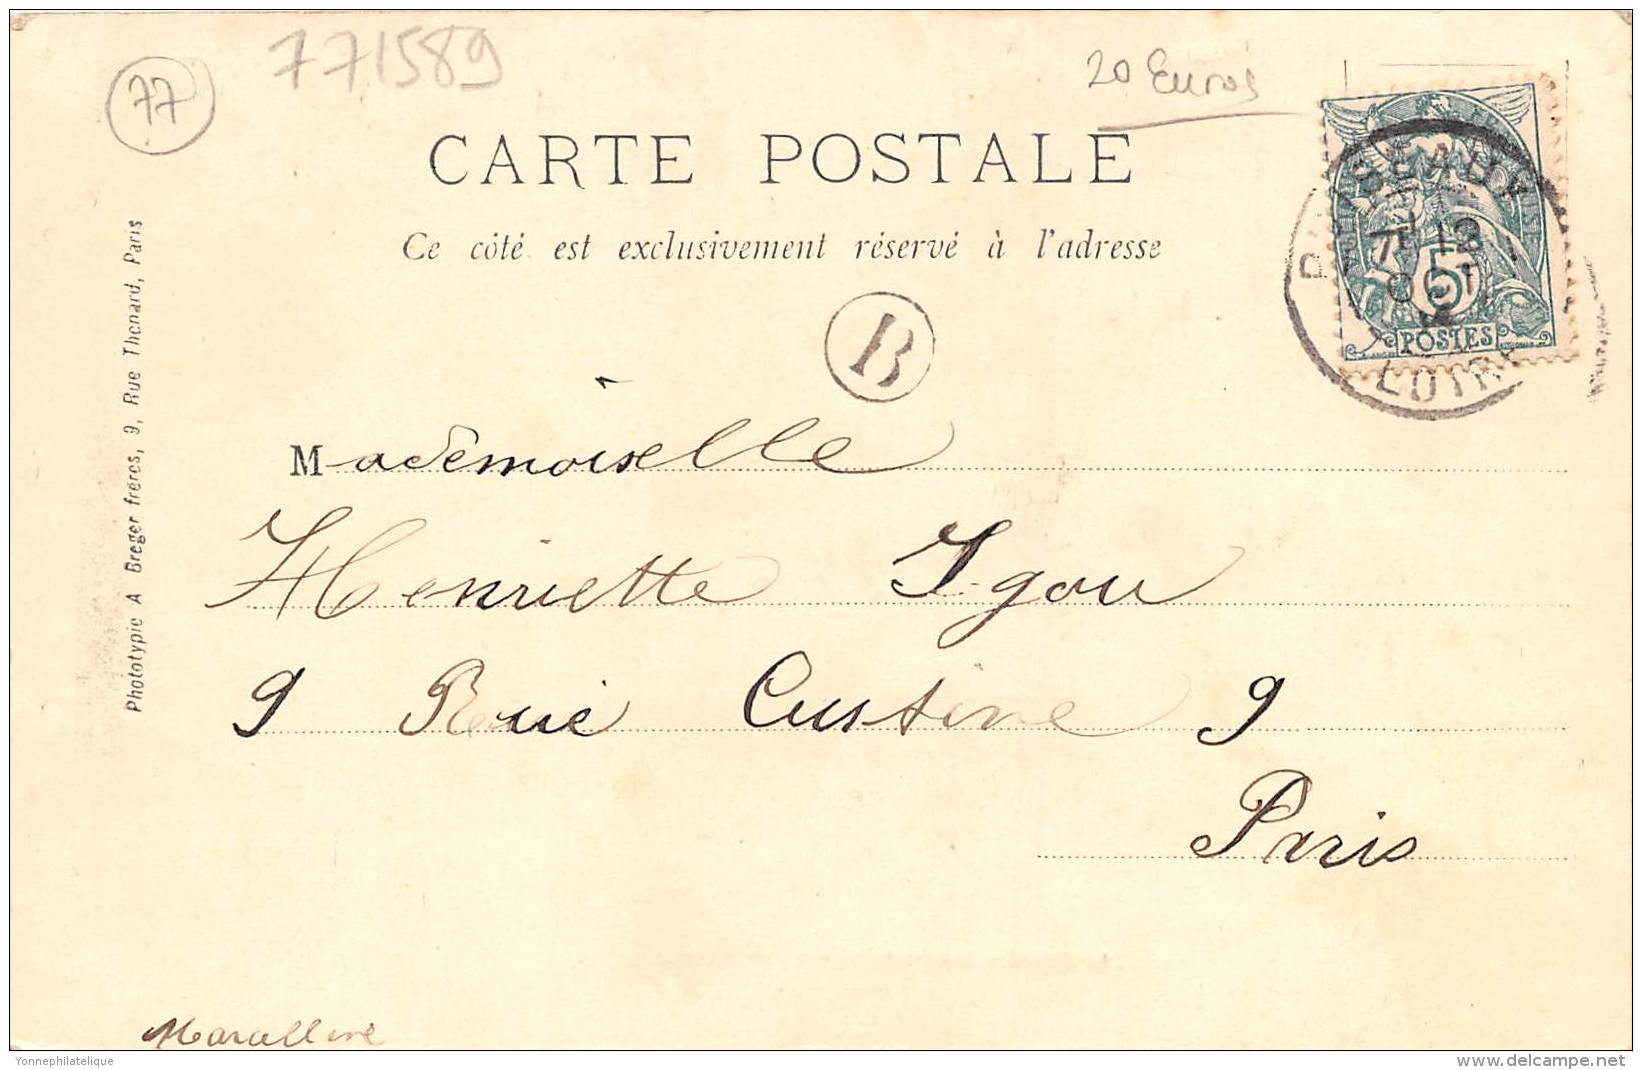 77
771589
20 Euros
CARTE POSTALE
Ce côté est exclusivement réservé à l'adresse
PUISEAUX
POSTES
5
B
Mademoiselle
Henriette Igou
9 Rue Custine 9
Paris
Marcelline
Phototypie A Breger frères, 9, Rue Thenard, Paris
Yonnephilatelique
www.delcampe.net